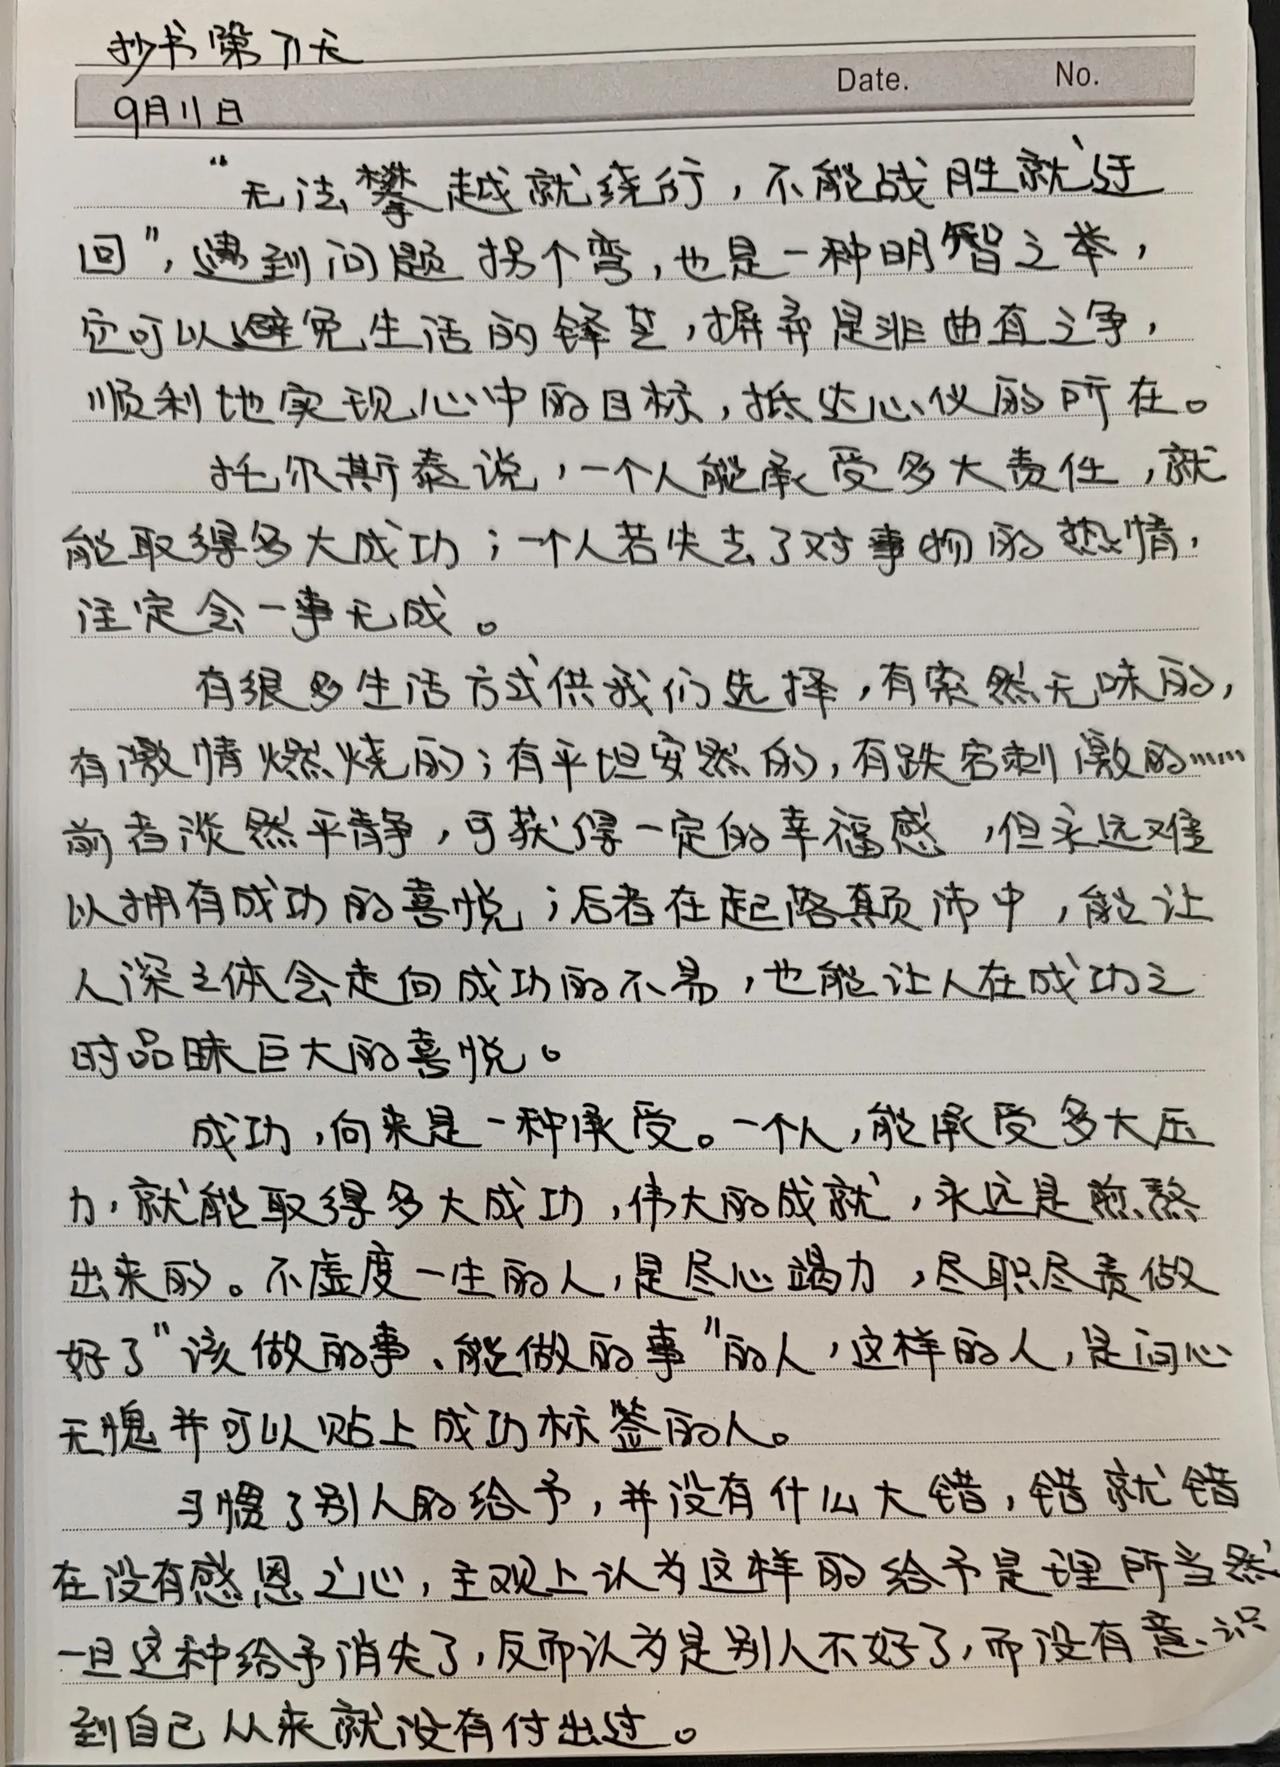 抄书第71天
Date. No.
9月11日
“无法攀越就绕行，不能战胜就迂
回”，遇到问题拐个弯，也是一种明智之举，
它可以避免生活的锋芒，摒弃是非曲直之争，
顺利地实现心中的目标，抵达心仪的所在。
托尔斯泰说，一个人能承受多大责任，就
能取得多大成功；一个人若失去了对事物的热情，
注定会一事无成。
有很多生活方式供我们选择，有索然无味的，
有激情燃烧的；有平坦安然的，有跌宕刺激的……
前者淡然平静，可获得一定的幸福感，但永远难
以拥有成功的喜悦；后者在起落颠沛中，能让
人深立体会走向成功的不易，也能让人在成功之
时品味巨大的喜悦。
成功，向来是一种承受。一个人，能承受多大压
力，就能取得多大成功，伟大的成就，永远是煎熬
出来的。不虚度一生的人，是尽心竭力，尽职尽责做
好了“该做的事、能做的事”的人，这样的人，是问心
无愧并可以贴上成功标签的人。
习惯了别人的给予，并没有什么大错，错就错
在没有感恩之心，主观上认为这样的给予是理所当然
一旦这种给予消失了，反而认为是别人不好了，而没有意识
到自己从来就没有付出过。